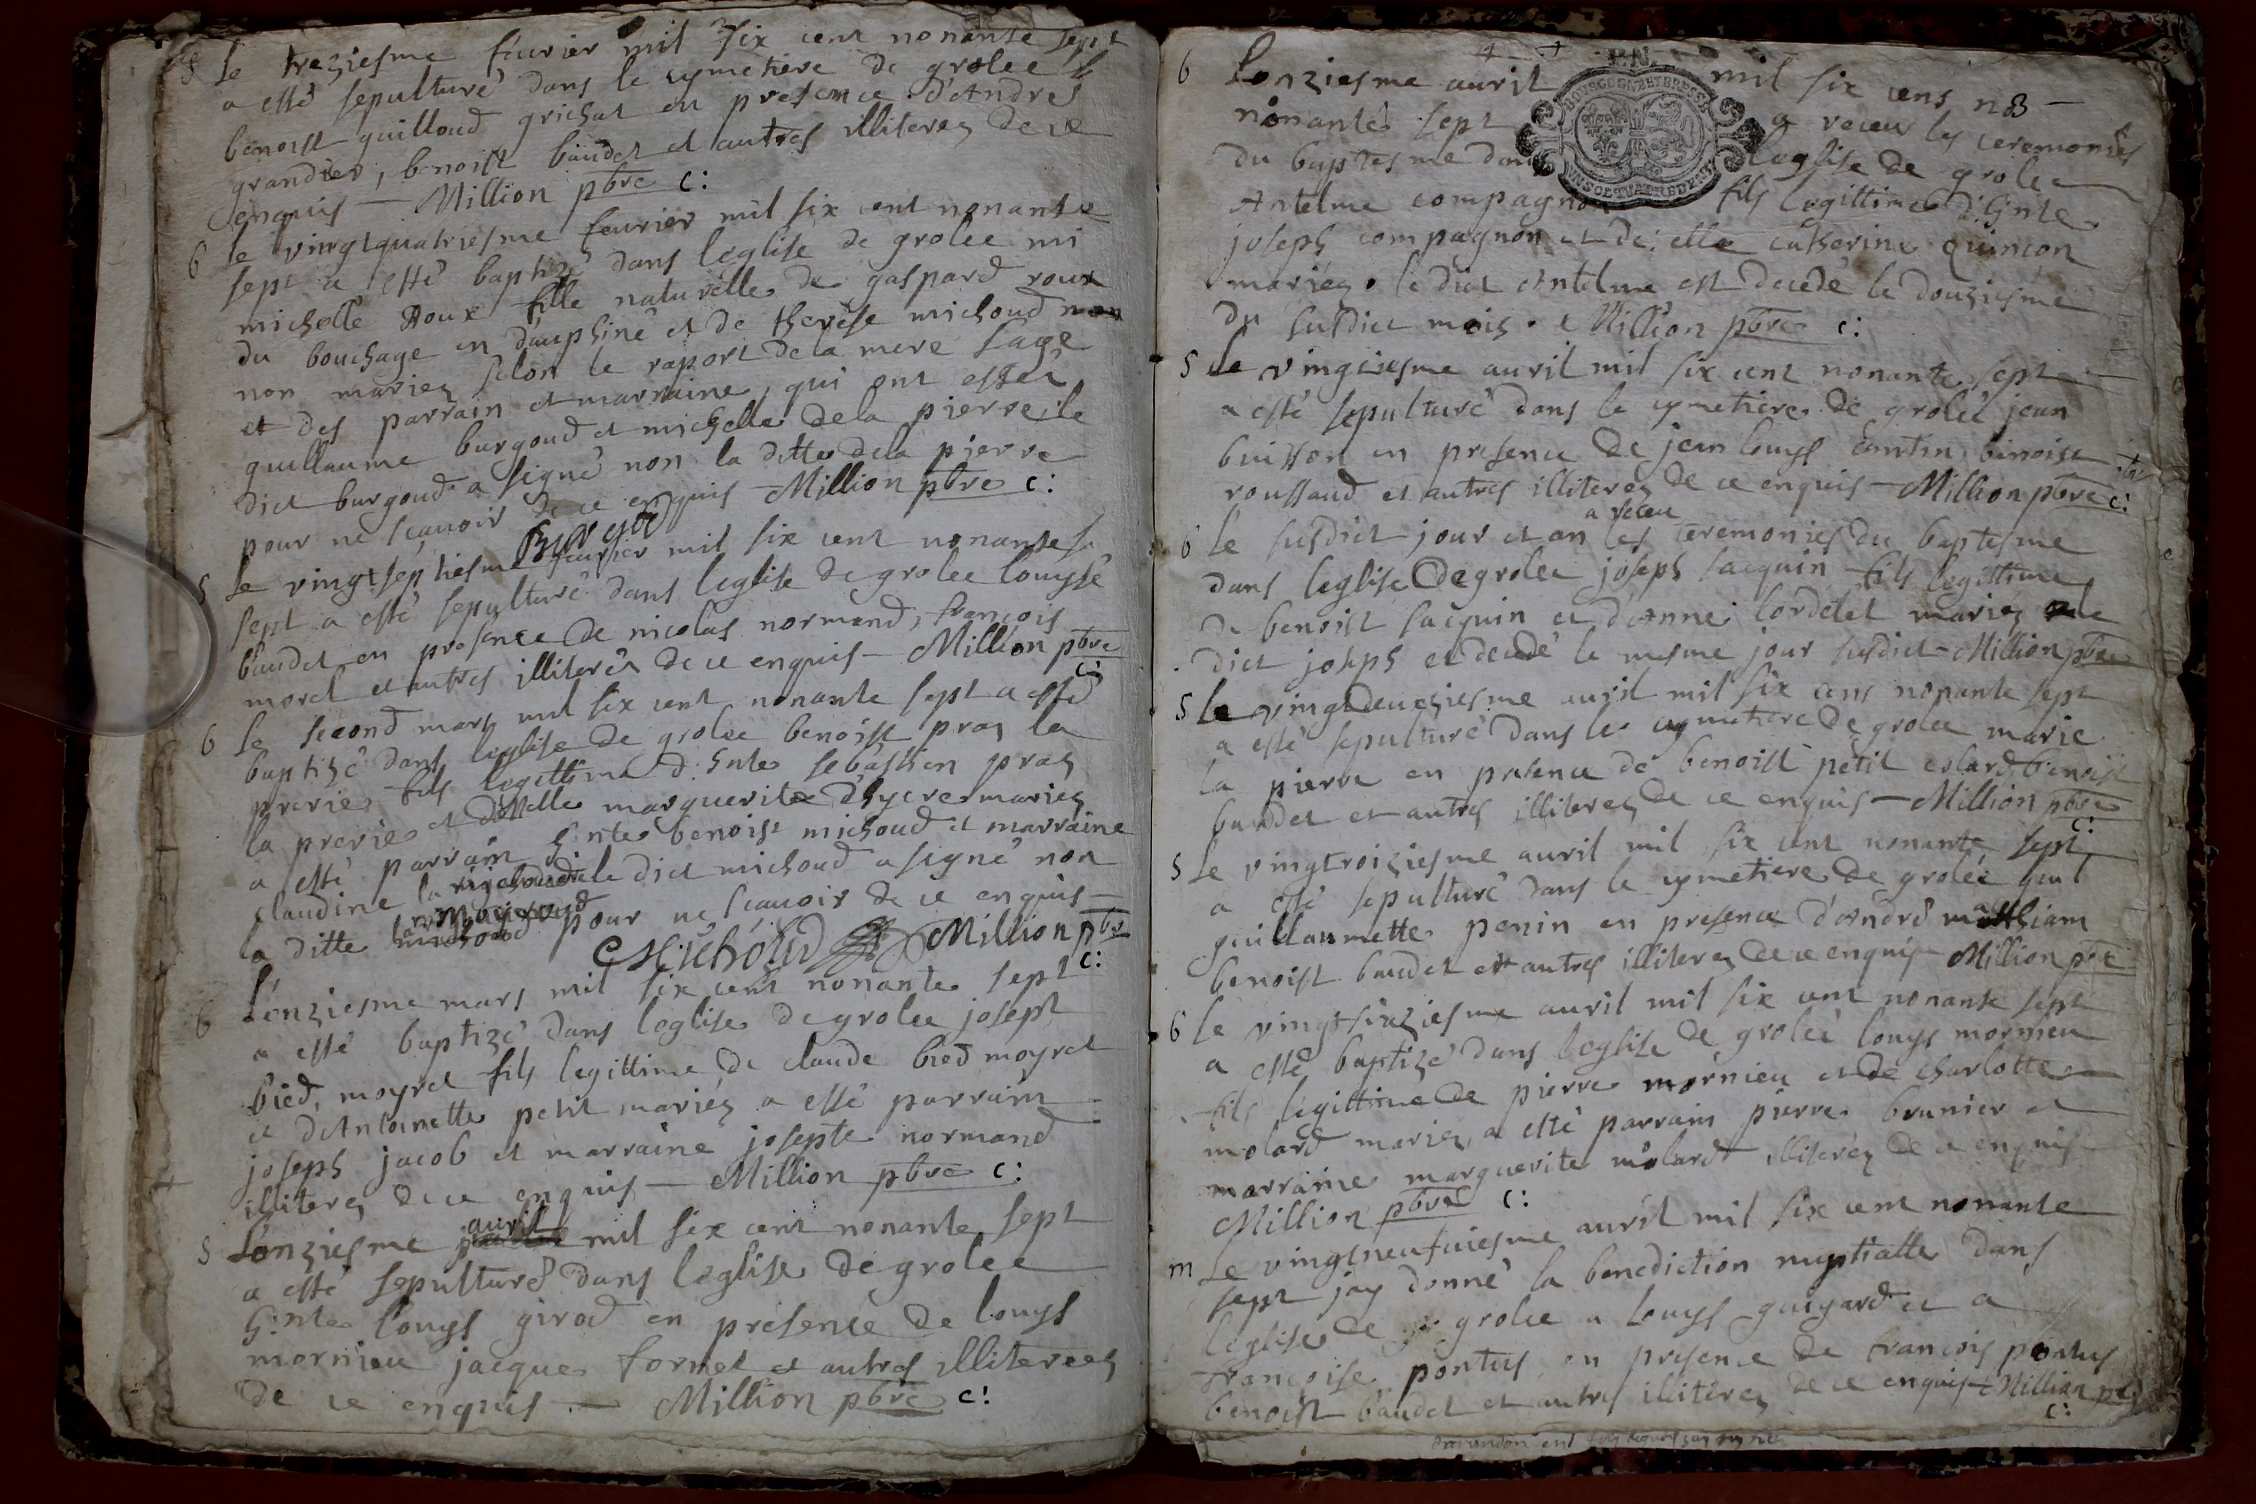 S Le treziesme feurier mil six cent nonante sept
a esté sepulturé dans le cymetiere de grolee
benoist guilloud grichat en presence d'Andre
grandier, benoist baudet et autres illiterez de ce
enquis — Million pbre c:
6 Le vingtquatriesme feurier mil six cent nonante
sept a esté baptizé dans leglise de grolee mi
michelle Roux fille naturelle de gaspard roux
du bouchage en dauphiné et de therese michoud
non mariez selon le raport de la mere sage
et des parrain et marraine, qui ont estez
guillaume burgoud et michelle dela pierre le
dict burgoud a signé non la ditte dela pierre
pour ne scauoir de ce enquis — Million pbre c:
Burgod
S Le vingtseptiesme feurier mil six cent nonante
sept a esté sepulturé dans leglise de grolee louysse
baudet en presence de nicolas normand, francois
morel et autres illiterez de ce enquis — Million pbre
c:
6 Le second mars mil six cent nonante sept a esté
baptizé dans leglise de grolee benoist praz la
prerie fils legittime d'hnte sebastien praz
la prerie et delle marguerite d'hyere mariez
a esté parrain hnte benoist michoud et marraine
claudine le dict michoud a signé non
la ditte pour ne scauoir de ce enquis —
Michoud Million pbre
c:
6 L'onziesme mars mil six cent nonante sept
a esté baptizé dans leglise de grolee joseph
bied, moyret fils legittime de claude bied moyret
et d'Antoinette petit mariez a esté parrain
joseph jacob et marraine josepte normand
illiterez de ce enquis — Million pbre c:
S L'onziesme auril mil six cent nonante sept
a esté sepulturé dans leglise de grolee
h:nte louys girod en presence de louys
mornieu jacque fornet et autres illiterees
de ce enquis — Million pbre c:
6 Lonziesme auril mil six cens no —
nonante sept a receu les ceremonies
du baptesme dans leglise de grolee
Antelme compagnon fils legittime d'hnte
joseph compagnon et de: elle catherine quincon
mariez. le dict Antelme est decede le douziesme
du susdict mois. Million pbre c:
S Le vingtiesme auril mil six cent nonante sept —
a esté sepulturé dans le cymetiere de grolee jean
buisson en presence de jean louys benoist
roussaud et autres illiterez de ce enquis — Million pbre c:
a receu
6 Le susdict jour et an les ceremonies du baptesme
dans leglise de grolee joseph jacquin fils legittime
de benoist jacquin et d'Anne cordelet mariez le
dict joseph et decedé le mesme jour susdict — Million pbre
S Le vingtdeuziesme auril mil six cens nonante sept
a esté sepulturé dans le cymetiere de grolee marie
la pierre en presence de benoist petit colard, benoist
baudet et autres illiterez de ce enquis — Million pbre
c:
S Le vingtroiziesme auril mil six cent nonante sept
a esté sepulturé dans le cymetiere de grolee gui
guillaumette penin en presence d'André
benoist baudet et autres illiterez de ce enquis — Million pbre
6 Le vingtsixziesme auril mil six cent nonante sept
a esté baptizé dans leglise de grolee louys mornieu
fils legittime de pierre mornieu et de charlotte
molard mariez, a esté parrain pierre brunier et
marraine marguerite molard illiterez de ce enquis
Million pbre c:
m Le vingtneufuiesme auril mil six cent nonante
sept jay donné la benediction nuptialle dans
leglise de grolee a louys guigard et a
francoise pontus en presence de francois pontus
benoist baudet et autres illiterez de ce enquis — Million pbre
c: